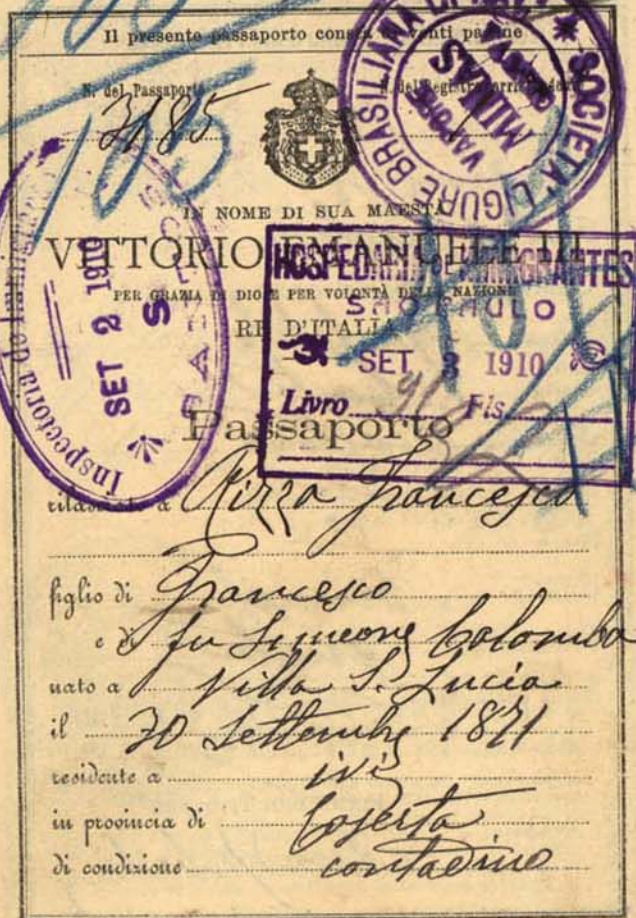 Il presente passaporto consta di venti pagine
N. del Passaporto
3185
SOCIETA' LIGURE BRASILIANA
VAPORE
MINAS
IN NOME DI SUA MAESTÀ
VITTORIO EMANUELE III
PER GRAZIA DI DIO E PER VOLONTÀ DELLA NAZIONE
RE D'ITALIA
Inspectoria de Immigração
SET 2 1910
SANTOS
HOSPEDARIA DE IMMIGRANTES
SÃO PAULO
SET 3 1910
Livro Fls.
Passaporto
rilasciato a Rizza Francesco
figlio di Francesco
e di fu Simeone Colomba
nato a Villa S. Lucia
il 30 Settembre 1871
residente a ivi
in provincia di Caserta
di condizione contadino